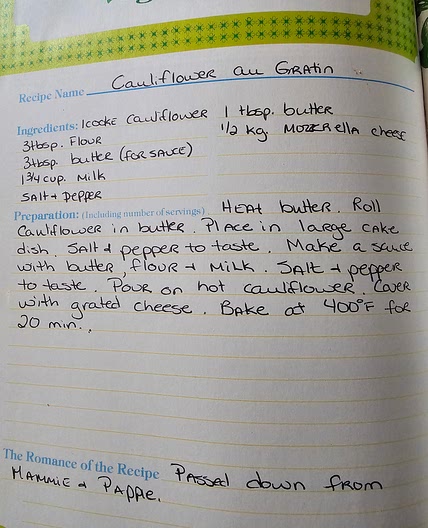 Recipe Name Cauliflower au Gratin
Ingredients: 1 cooke cauliflower 1 tbsp. butter
3tbsp. Flour 1/2 kg. Mozzerella cheese
3tbsp. butter (for sauce)
1 3/4 cup. Milk
Salt & pepper
Preparation: (Including number of servings) Heat butter. Roll
Cauliflower in butter. Place in large cake
dish. Salt & pepper to taste. Make a sauce
with butter, flour & Milk. Salt & pepper
to taste. Pour on hot cauliflower. Cover
with grated cheese. Bake at 400°F for
20 min..
The Romance of the Recipe Passed down from
Mammie & Pappe.